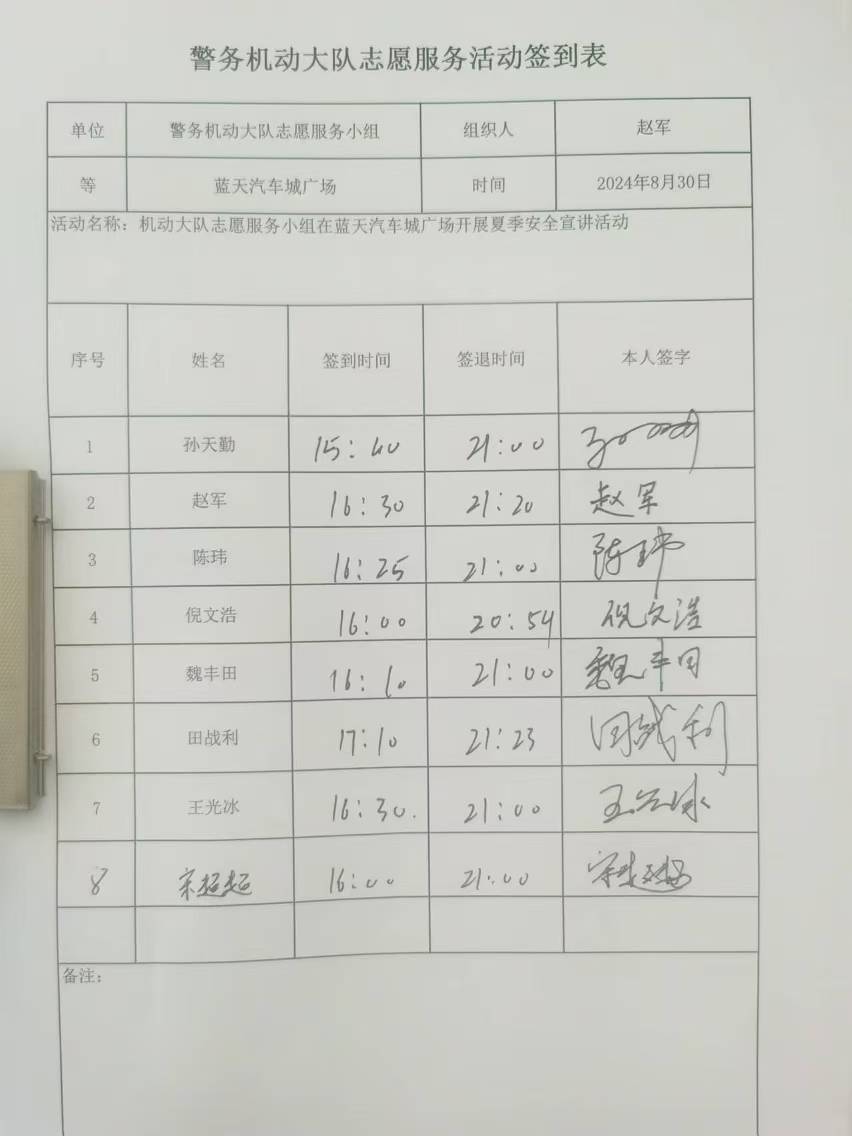 警务机动大队志愿服务活动签到表
单位 警务机动大队志愿服务小组 组织人 赵军
等 蓝天汽车城广场 时间 2024年8月30日
活动名称：机动大队志愿服务小组在蓝天汽车城广场开展夏季安全宣讲活动
序号 姓名 签到时间 签退时间 本人签字
1 孙天勤 15:40 21:00
2 赵军 16:30 21:20 赵军
3 陈玮 16:25 21:00 陈玮
4 倪文浩 16:00 20:54 倪文浩
5 魏丰田 16:10 21:00 魏丰田
6 田战利 17:10 21:23 田战利
7 王光冰 16:30. 21:00 王光冰
8 宋超超 16:00 21:00 宋超超
备注：